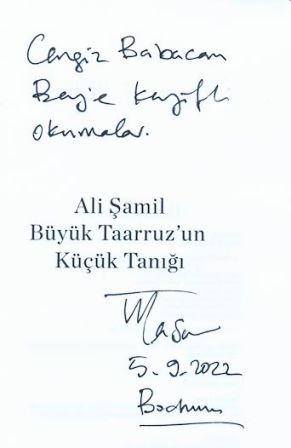 Cengiz Babacan
Bey'e keyifli
okumalar.
Ali Şamil
Büyük Taarruz'un
Küçük Tanığı
5.9.2022
Bochum